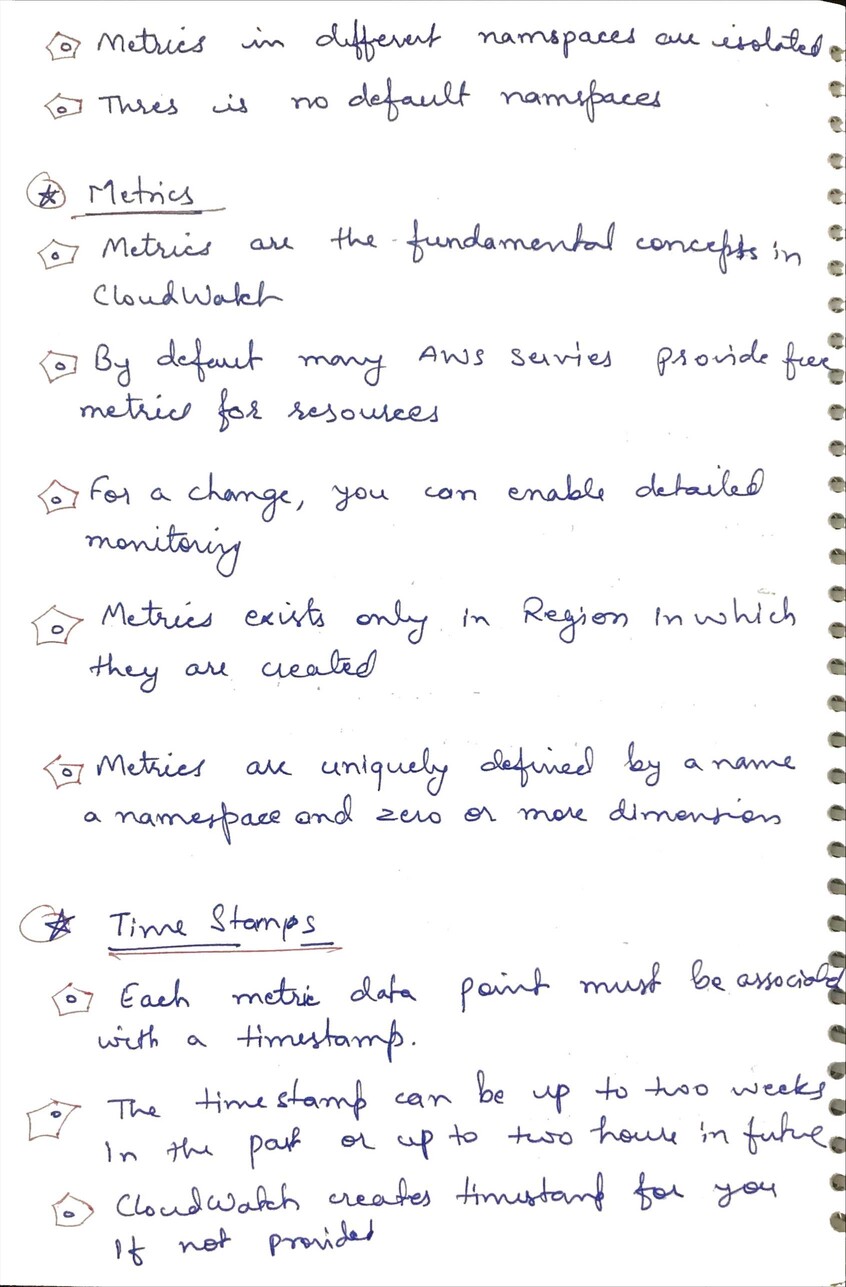 Metrics in different namspaces are isolated
Thres is no default namspaces
Metrics
Metrics are the fundamental concepts in
CloudWatch
By defaut many AWS servies provide free
metrics for resources
For a change, you can enable detailed
monitoring
Metrics exists only in Region in which
they are created
Metrics are uniquely defined by a name
a namespace and zero or more dimension
Time Stamps
Each metric data point must be associated
with a timestamp.
The time stamp can be up to two weeks
In the past or up to two house in future
CloudWatch creates timestamp for you
If not provided